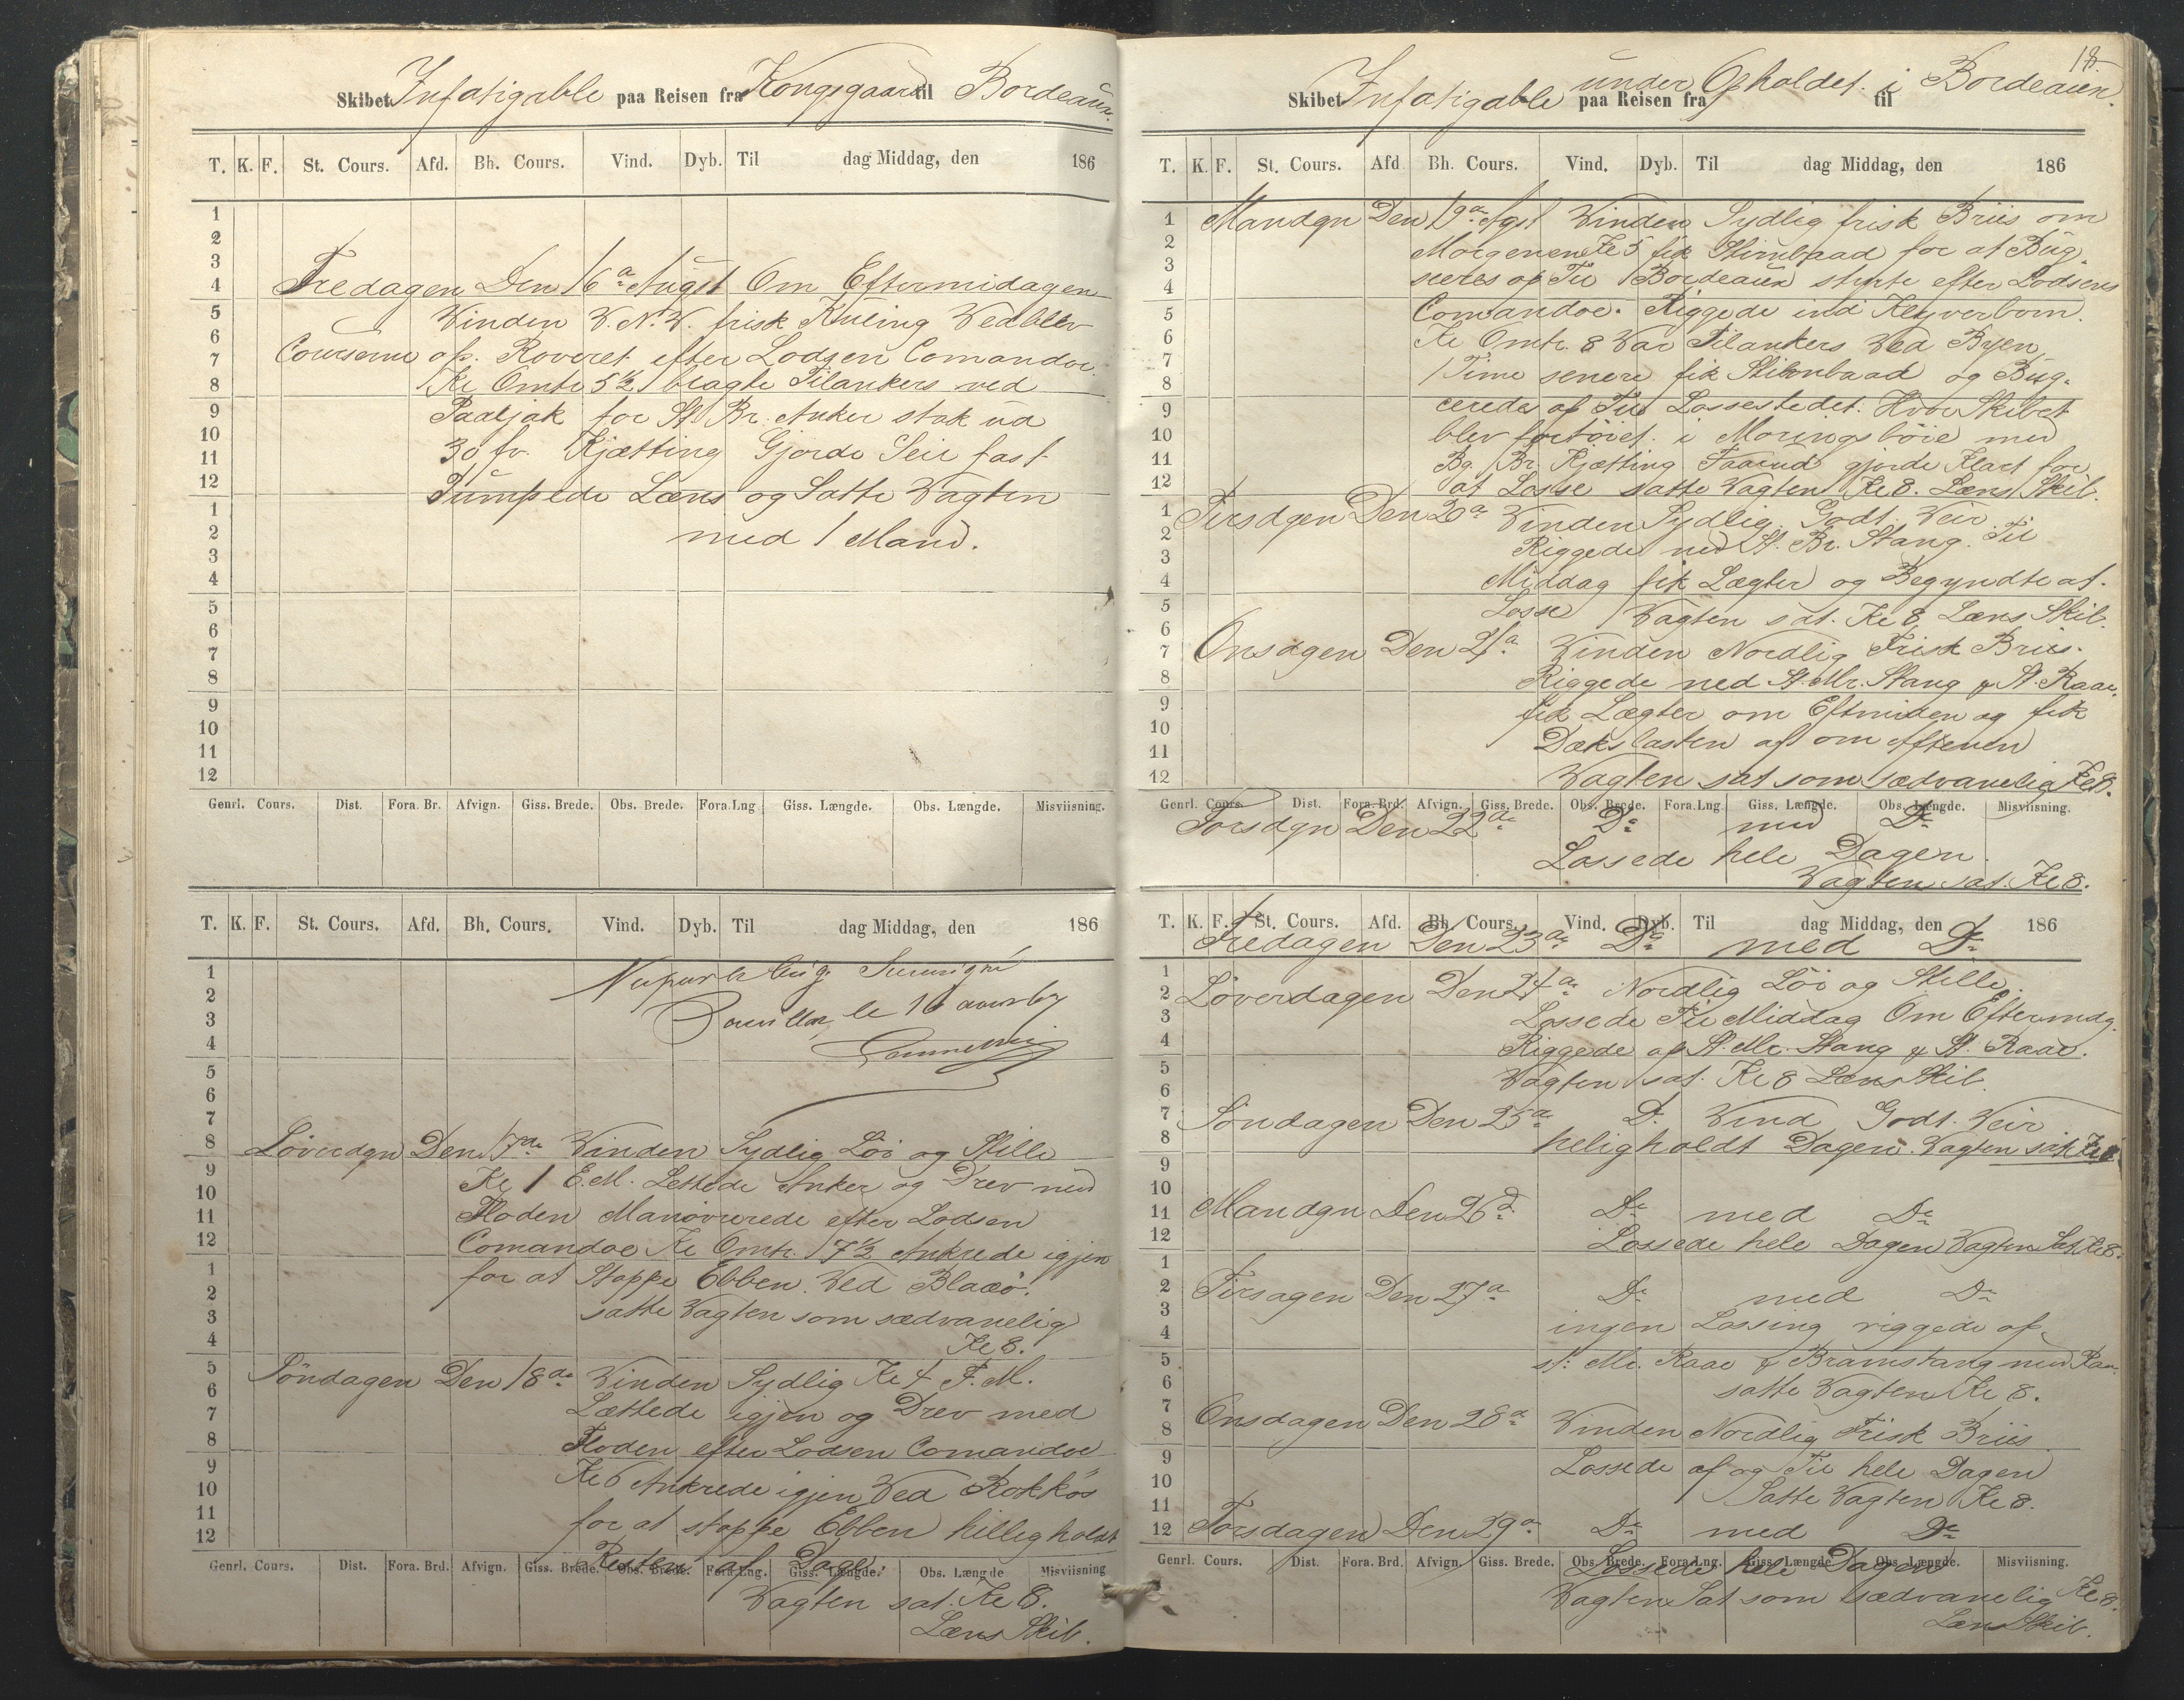 Skibet Infatigable paa Reisen fra Kongsgaard til Bordeaux.
T. K. F. St. Cours. Afd. Bh. Cours. Vind. Dyb. Til dag Middag, den 186
1
2
3
4
5
6
7
8
9
10
11
12
1
2
3
4
5
6
7
8
9
10
11
12
Fredagen Den 16a Augst Om Eftermidagen
Vinden V.N.V. frisk Kuling Vedblev
Courserne op. Reveret efter Lodsen Comandoe
Kl Omtr 5½ bragte Tilankers ved
Paaljak for St Br. Anker stak ud
30 fv. Kjætting Gjorde Seil fast
Pumpede Læns og Satte Vagten
med 1 Mand.
Genrl. Cours. Dist. Fora. Br. Afvign. Giss. Brede. Obs. Brede. Fora Lng Giss. Længde. Obs. Længde. Misviisning.
T. K. F. St. Cours. Afd. Bh. Cours. Vind. Dyb. Til dag Middag, den 186
1
2
3
4
5
6
7
8
9
10
11
12
1
2
3
4
5
6
7
8
9
10
11
12
le 16
Löverdgn Den 17de Vinden Sydlig Löi og Stille
Kl 1 E.M. Lettede Anker og Drev med
Floden Manövrerede efter Lodsen
Comandoe Kl Omtr. 7½ Ankrede igjen
for at Stoppe Ebben. Ved Blaeö.
satte Vagten som sædvanelig
Kl 8.
Söndagen Den 18de Vinden Sydlig Kl 4 F.M.
Lættede igjen og Drev med
Floden efter Lodsen Comandoe
Kl 6 Ankrede igjen Ved Rokkös
for at stoppe Ebben hilligholdt
Resten af Dagen
Genrl. Cours. Dist. Fora. Brd. Afvign. Giss. Brede. Obs. Brede. Fora. Lng. Giss. Længde. Obs. Længde Misviisning
Vagten sat. Kl 8.
Læns Skib.
18.
Skibet Infatigable paa Reisen fra under Opholdet i til Bordeaux.
T. K. F. St. Cours. Afd Bh. Cours. Vind. Dyb. Til dag Middag, den 186
1
2
3
4
5
6
7
8
9
10
11
12
1
2
3
4
5
6
7
8
9
10
11
12
Mandgn Den 19a Agst Vinden Sydlig frisk Briis om
Morgenen Kl 5 fik Stimbaad for at Bug.
seres op Til Bordeaux styrte efter Lodsens
Comandoe. Riggede ind Klyverbom.
Kl Omtr. 8 Var Tilankers Ved Byen
1 Time senere fik Stimbaad og Bug.
ceredes op Til Lossestedet. Hvor Skibet
blev fortöiet. i Moringsböie med
Bg. Br. Kjætting Faarud gjorde Klart for
at Losse satte Vagten Kl 8. Læns Skib.
Tirsdgen Den 20a Vinden Sydlig. Godt Veir.
Riggede ned St. Br. Stang. Til
Middag fik Lægter og Begyndte at.
Losse Vagten sat. Kl 8, Læns Skib.
Onsdgen Den 21a. Vinden Nordlig Frisk Briis.
Riggede ned St. Mr. Stang & St. Raae.
fik Lægter om Eftmiden og fik
Dækslasten af om Aftenen
Vagten sat som sædvanelig Kl 8.
Genrl. Cours. Dist. Fora. Brd. Afvign. Giss. Brede. Obs. Brede. Fora. Lng. Giss. Længde. Obs. Længde. Misviisning.
Torsdgn Den 22de Do med Do
Lossede hele Dagen.
Vagten sat. Kl 8.
T. K. F. St. Cours. Afd. Bh. Cours. Vind. Dyb. Til dag Middag, den 186
Fredagen Den 23de Do med Do
1
2
3
4
5
6
7
8
9
10
11
12
1
2
3
4
5
6
7
8
9
10
11
12
Löverdagen Den 24de Nordlig Löi og Stille.
Lossede Til Middag Om Eftermdg.
Riggede op St. Mr. Stang & St. Raae.
Vagten sat. Kl 8 Læns Skib.
Söndagen Den 25a Do Vind Godt. Veir
heligholdt Dagen. Vagten sat Kl 8
Mandgn Den 26d. Do med Do
Lossede hele Dagen Vagten Sat Kl 8.
Tirsagen Den 27a Do med Do
ingen Lossing riggede op
st: Mr. Raae & Bramstang med Raa.
satte Vagten Kl 8.
Onsdagen Den 28a Vinden Nordlig Frisk Briis.
Lossede af og Til hele Dagen
Satte Vagten Kl 8.
Torsdagen Den 29a Do med Do
Lossede hele Dagen
Genrl. Cours. Dist. Fora. Brd. Afvign Giss. Brede. Obs. Brede. Fora. Lng. Giss. Længde Obs. Længde. Misviisning.
Vagten Sat som sædvanelig Kl 8.
Læns Skib.